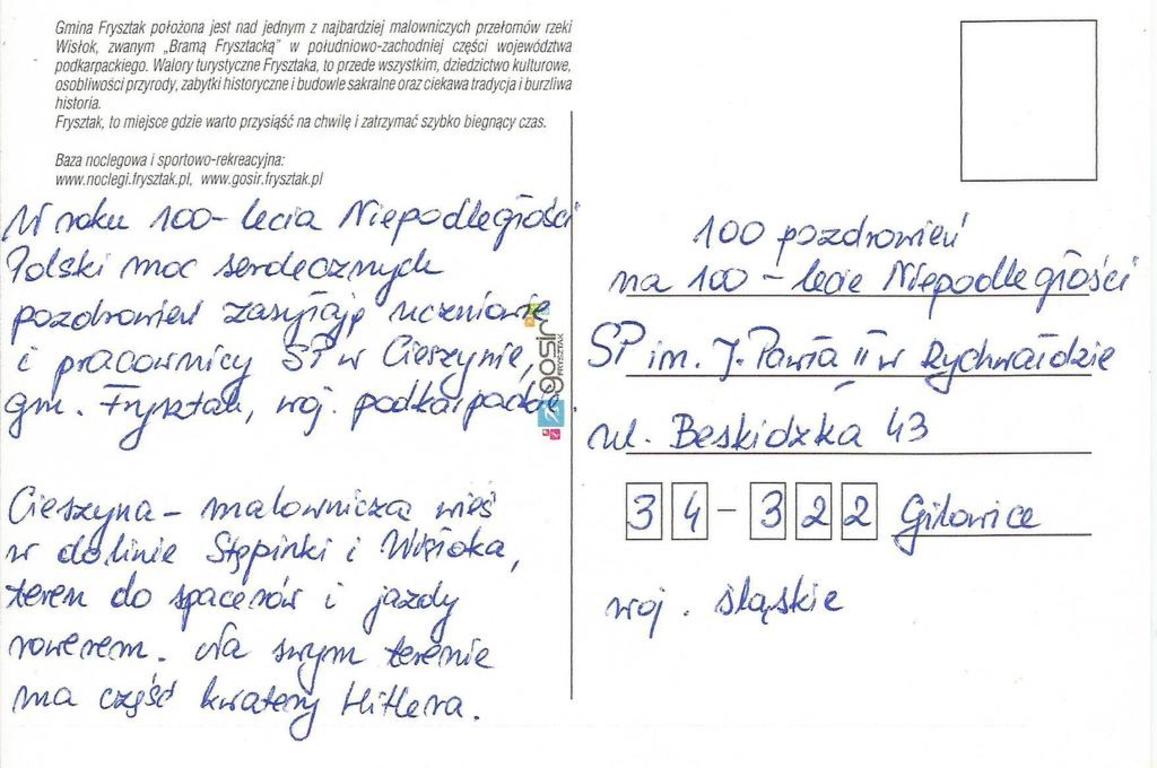 Gmina Frysztak położona jest nad jednym z najbardziej malowniczych przełomów rzeki
Wisłok, zwanym „Bramą Frysztacką" w południowo-zachodniej części województwa
podkarpackiego. Walory turystyczne Frysztaka, to przede wszystkim, dziedzictwo kulturowe,
osobliwości przyrody, zabytki historyczne i budowle sakralne oraz ciekawa tradycja i burzliwa
historia.
Frysztak, to miejsce gdzie warto przysiąść na chwilę i zatrzymać szybko biegnący czas.
Baza noclegowa i sportowo-rekreacyjna:
www.noclegi.frysztak.pl, www.gosir.frysztak.pl
W roku 100-lecia Niepodległości
Polski moc serdecznych
pozdrowień zasyłają uczniowie
i pracownicy SP w Cieszynie,
gm. Frysztak, woj. podkarpackie.
Cieszyna – malownicza wieś
w dolinie Stępinki i Wisłoka,
teren do spacerów i jazdy
rowerem. Na swym terenie
ma część kwatery Hitlera.
gosir
FRYSZTAK
100 pozdrowień
na 100-lecie Niepodległości
SP im. J. Pawła II w Rychwałdzie
ul. Beskidzka 43
34-322 Gilowice
woj. śląskie